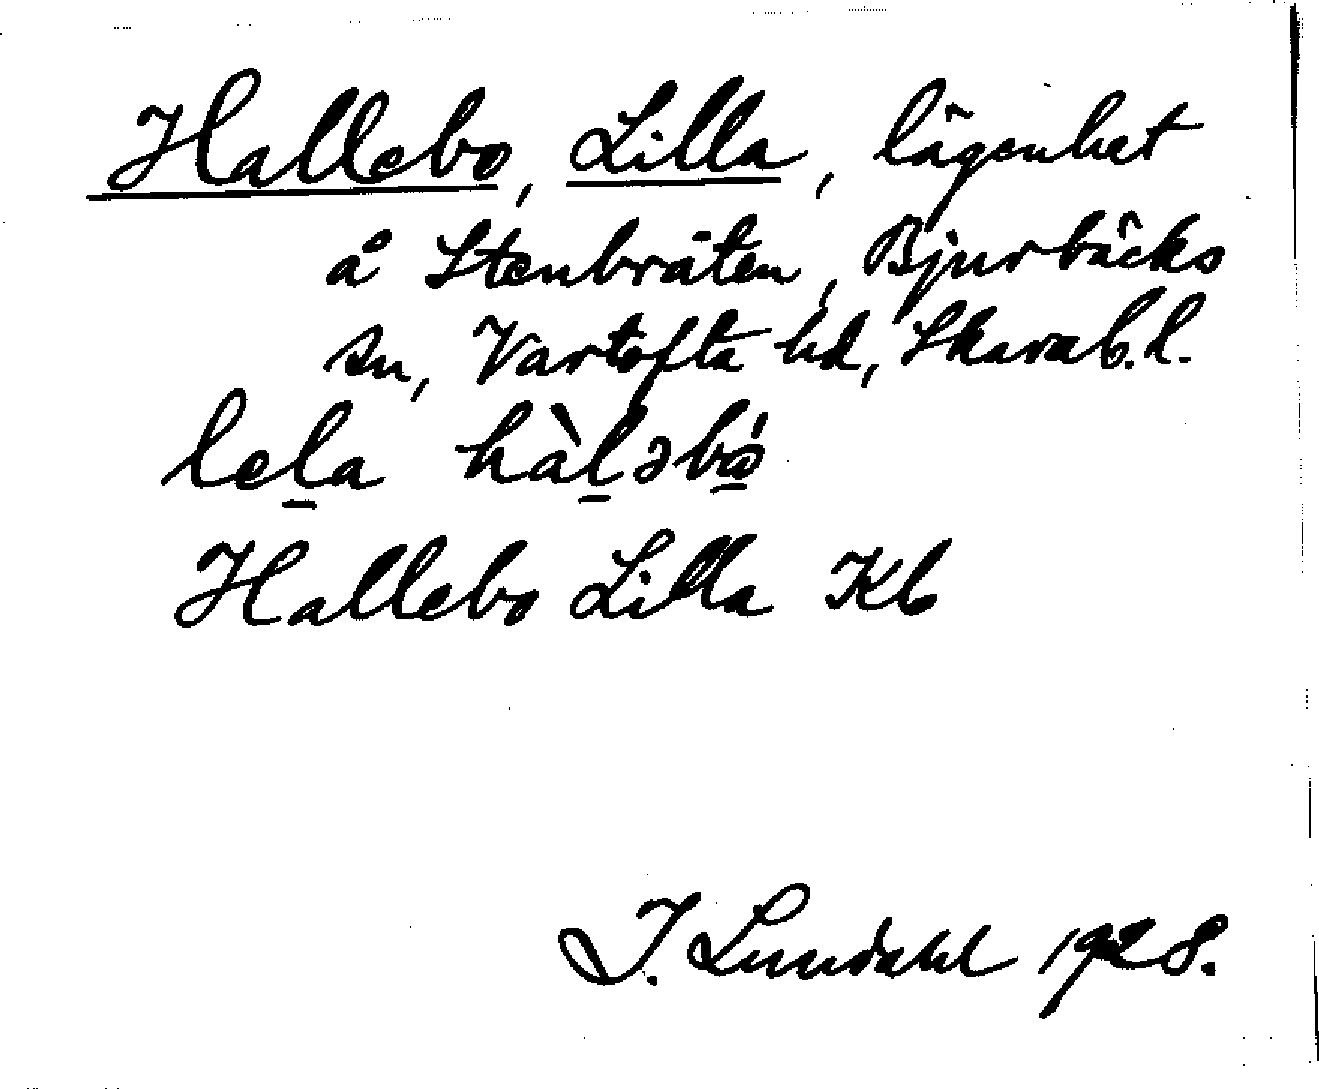 Hallebo, Lilla, lägenhet
å Stenbråten, Bjurbäcks
sn, Vartofta hd, Skarab. l.
lel̠a hàl̠əbǻ̠
Hallebo Lilla Kb
I. Lundahl 1928.